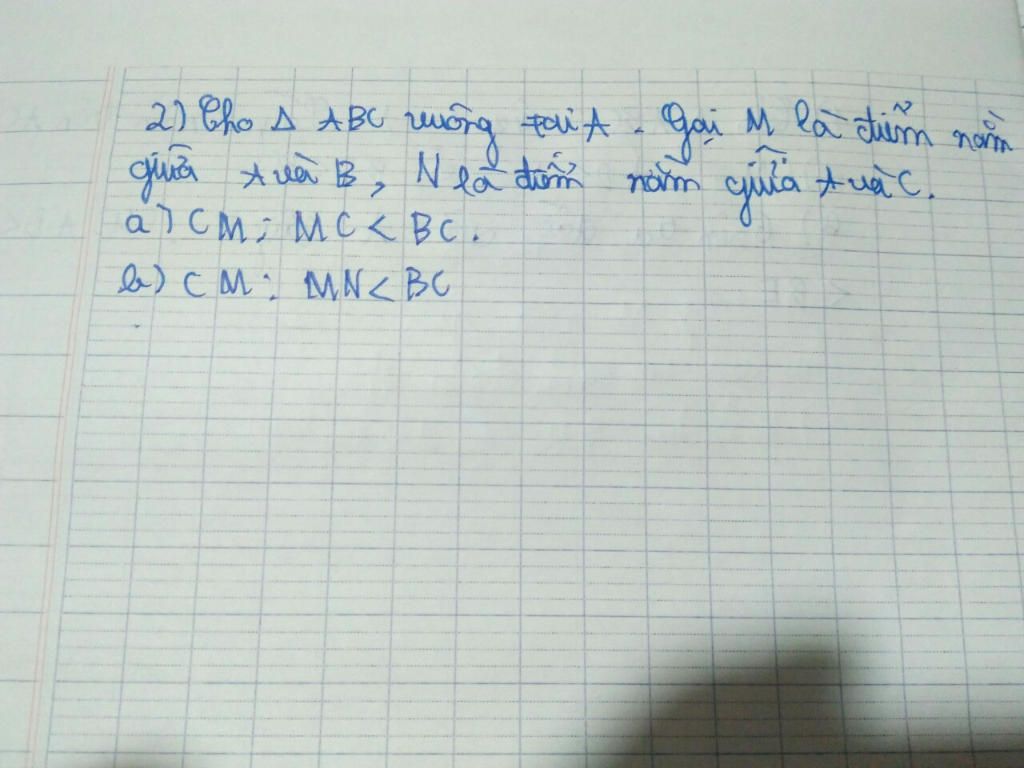 2) Cho Δ ABC vuông tại A. Gọi M là điểm nằm
giữa A và B, N là điểm nằm giữa A và C.
a) CM: MC < BC.
b) CM: MN < BC